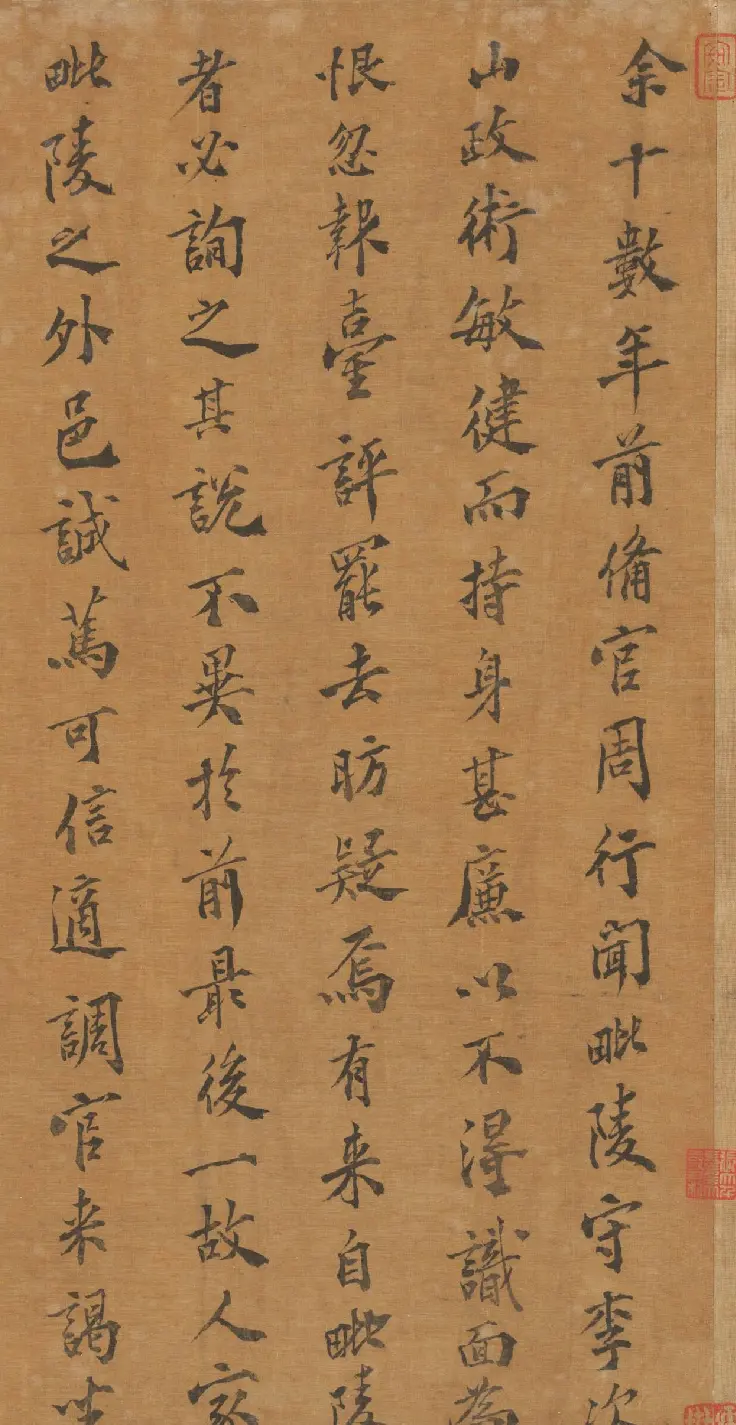 余十數年前備官周行聞毗陵守李次
山政術敏健而持身甚廉以不得識面為
恨忽報臺評罷去昉疑焉有来自毗陵
者必詢之其說不異於前最後一故人家
毗陵之外邑誠篤可信適調官来謁坐